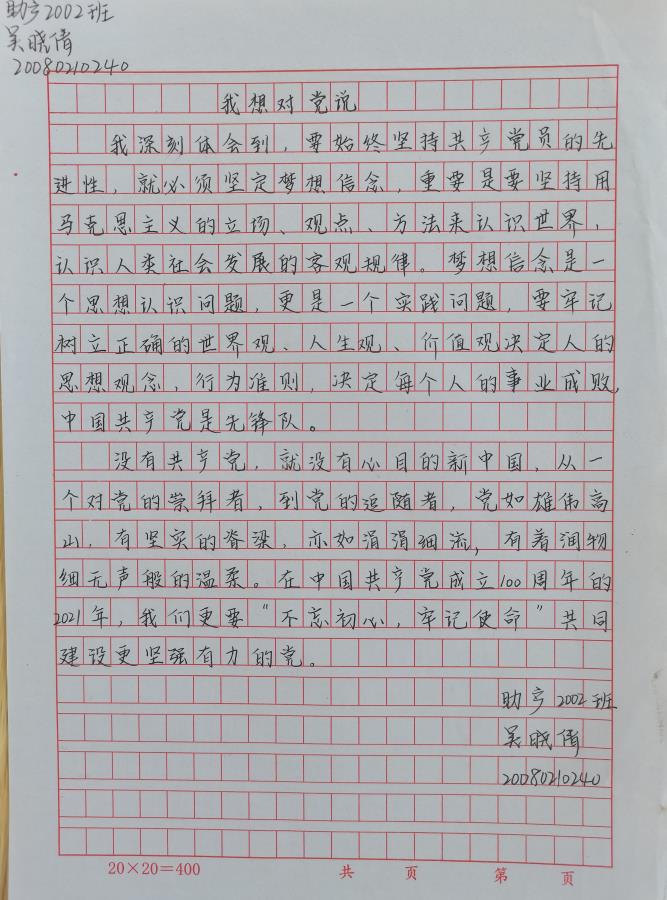 助产2002班
吴晓倩
20080210240
我想对党说
我深刻体会到，要始终坚持共产党员的先
进性，就必须坚定梦想信念，重要是要坚持用
马克思主义的立场、观点、方法来认识世界，
认识人类社会发展的客观规律。梦想信念是一
个思想认识问题，更是一个实践问题，要牢记
树立正确的世界观、人生观、价值观决定人的
思想观念，行为准则，决定每个人的事业成败，
中国共产党是先锋队。
没有共产党，就没有心目的新中国，从一
个对党的崇拜者，到党的追随者，党如雄伟高
山，有坚实的脊梁，亦如涓涓细流，有着润物
细无声般的温柔。在中国共产党成立100周年的
2021年，我们更要“不忘初心，牢记使命”共同
建设更坚强有力的党。
助产2002班
吴晓倩
20080210240
20×20=400 共 页 第 页